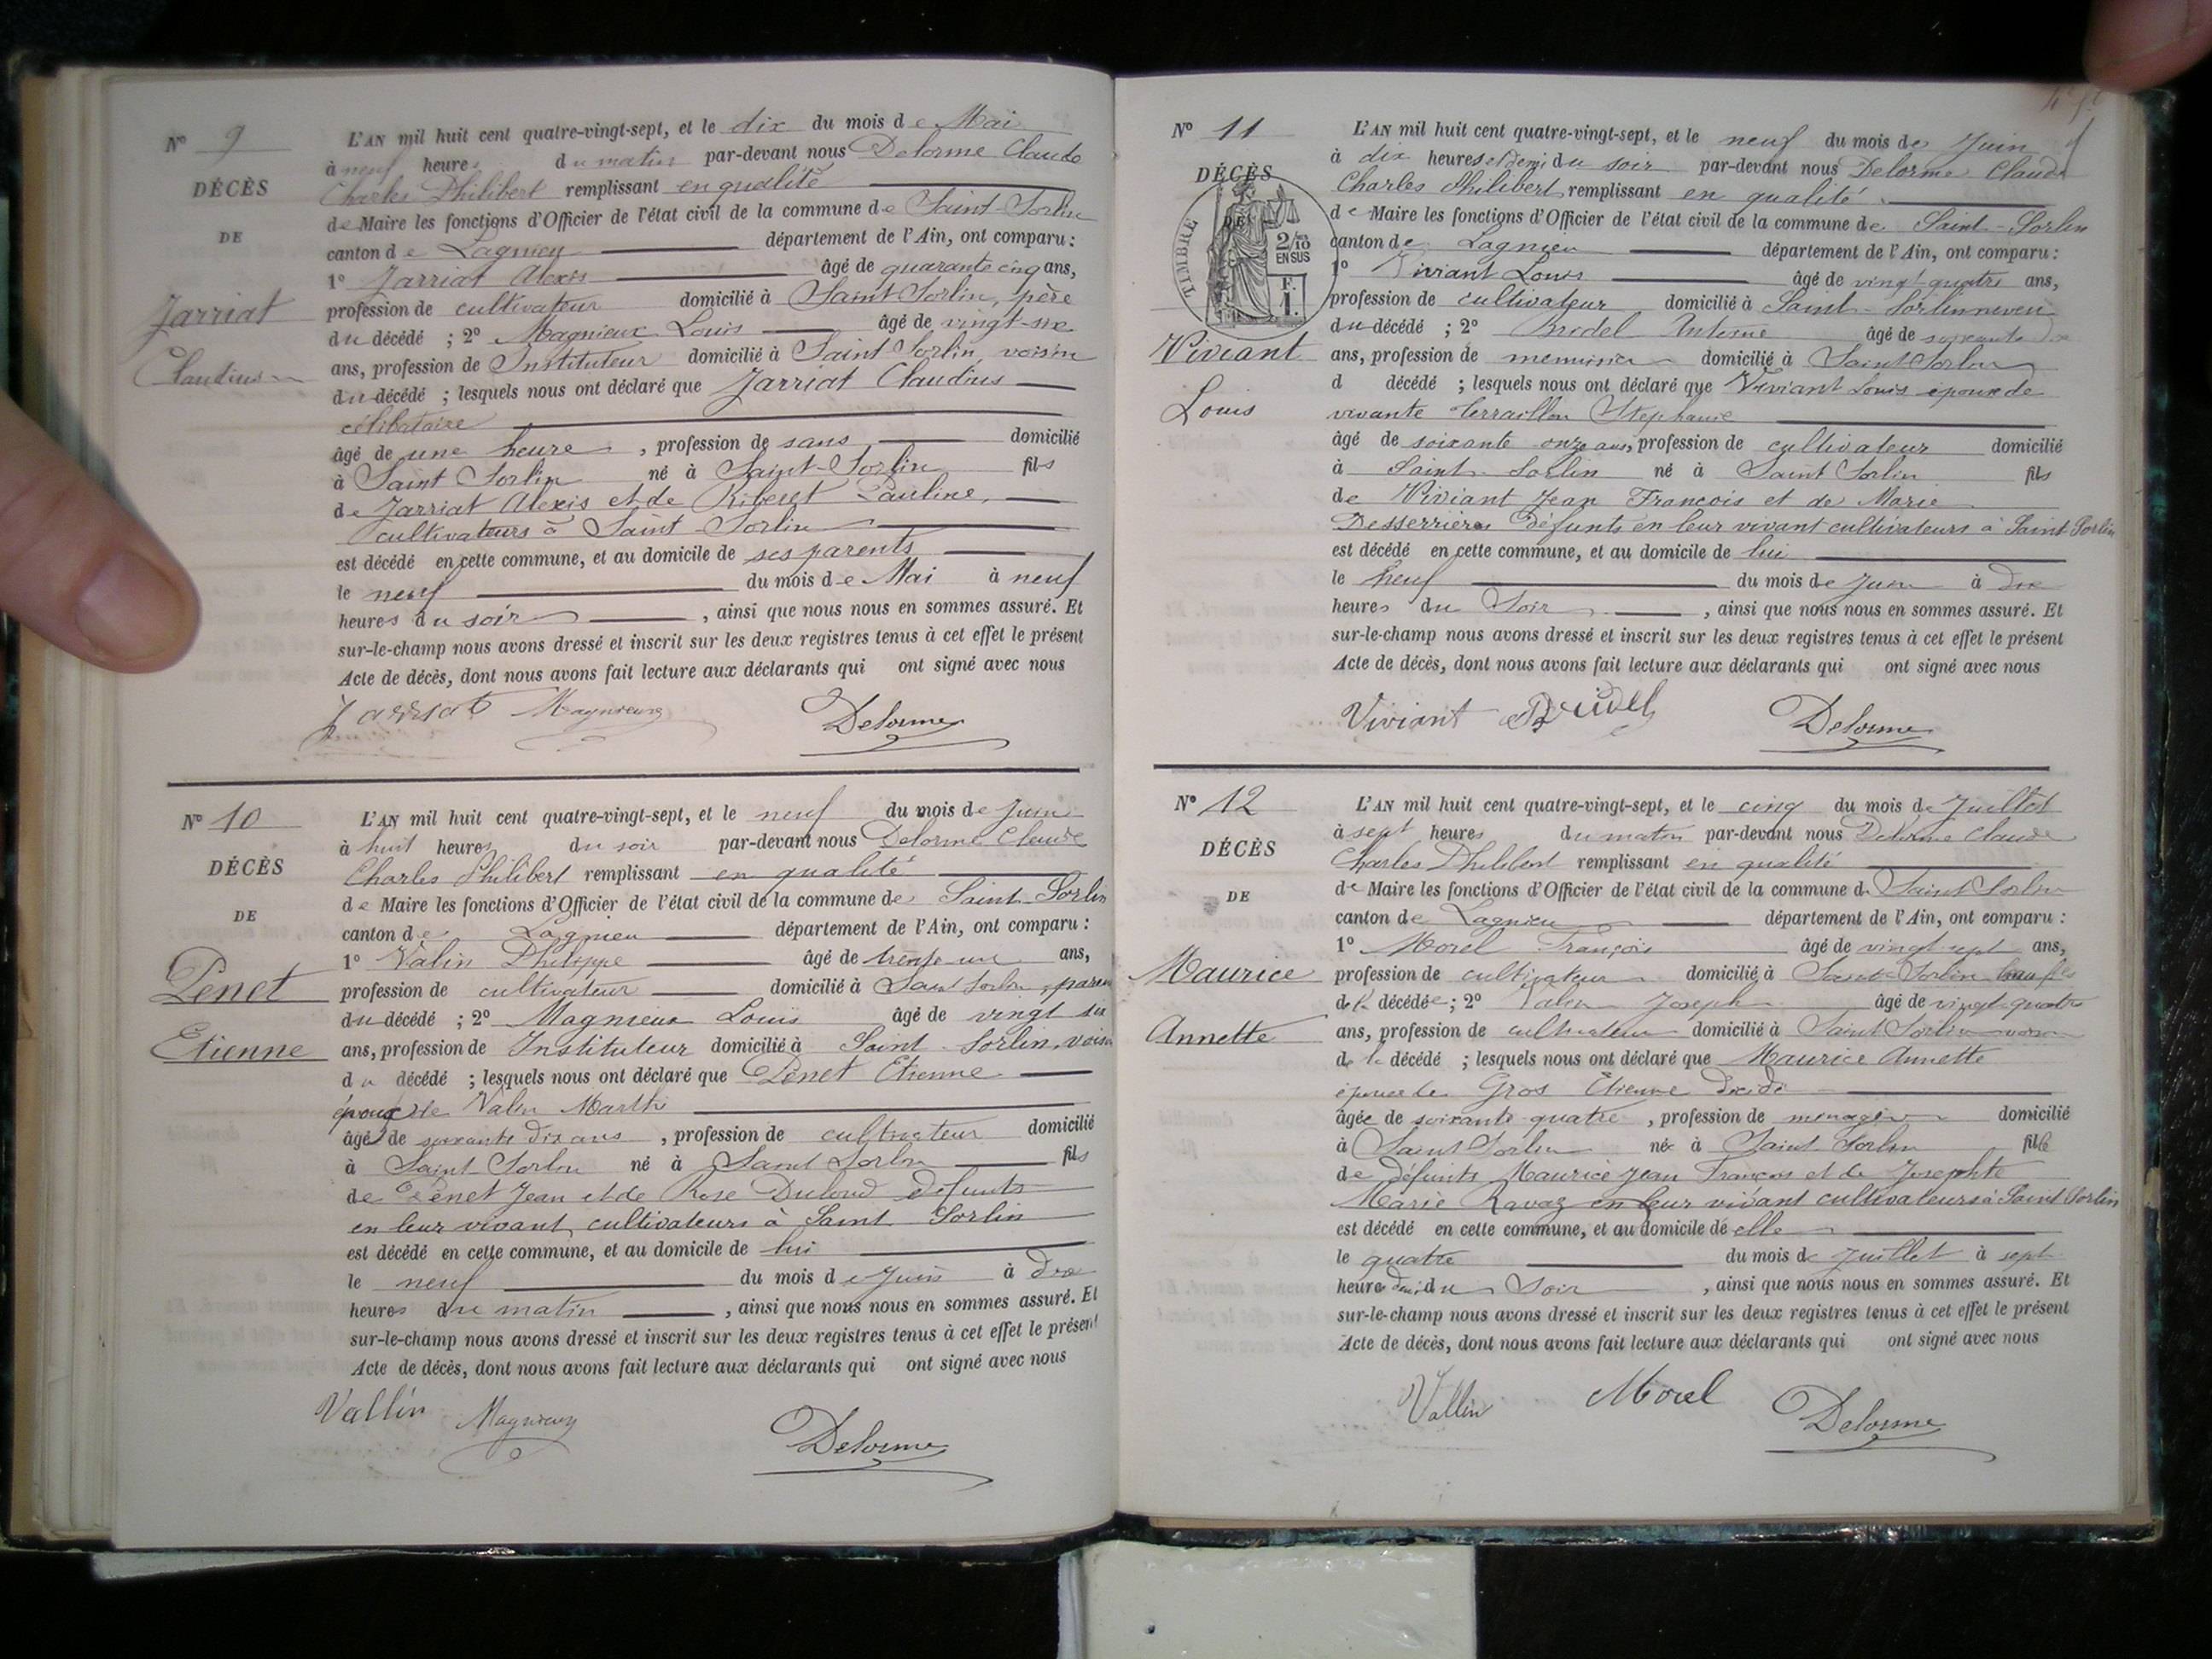 N° 9
DÉCÈS
DE
Jarriat
Claudius
L'AN mil huit cent quatre-vingt-sept, et le dix du mois de Mai
à neuf heures du matin par-devant nous Delorme Claude
Charles Philibert remplissant en qualité
de Maire les fonctions d'Officier de l'état civil de la commune de Saint-Sorlin
canton de Lagnieu département de l'Ain, ont comparu :
1° Jarriat Alexis âgé de quarante cinq ans,
profession de cultivateur domicilié à Saint Sorlin, père
du décédé ; 2° Magnieux Louis âgé de vingt-six
ans, profession de Instituteur domicilié à Saint Sorlin, voisin
du décédé ; lesquels nous ont déclaré que Jarriat Claudius
célibataire
âgé de une heure, profession de sans domicilié
à Saint Sorlin né à Saint-Sorlin fils
de Jarriat Alexis et de Pauline,
cultivateurs à Saint Sorlin
est décédé en cette commune, et au domicile de ses parents
le neuf du mois de Mai à neuf
heures du soir, ainsi que nous nous en sommes assuré. Et
sur-le-champ nous avons dressé et inscrit sur les deux registres tenus à cet effet le présent
Acte de décès, dont nous avons fait lecture aux déclarants qui ont signé avec nous
Jarriat Magnieux Delorme
N° 10
DÉCÈS
DE
Penet
Etienne
L'AN mil huit cent quatre-vingt-sept, et le neuf du mois de Juin
à huit heures du soir par-devant nous Delorme Claude
Charles Philibert remplissant en qualité
de Maire les fonctions d'Officier de l'état civil de la commune de Saint-Sorlin
canton de Lagnieu département de l'Ain, ont comparu :
1° Valin Philippe âgé de trente un ans,
profession de cultivateur domicilié à Saint Sorlin, paren
du décédé ; 2° Magnieux Louis âgé de vingt six
ans, profession de Instituteur domicilié à Saint-Sorlin, voisin
du décédé ; lesquels nous ont déclaré que Penet Etienne
époux de Valin Marthe
âgé de soixante dix ans, profession de cultivateur domicilié
à Saint Sorlin né à Saint Sorlin fils
de Penet Jean et de Rose défunts
en leur vivant cultivateurs à Saint Sorlin
est décédé en cette commune, et au domicile de lui
le neuf du mois de Juin à dix
heures du matin, ainsi que nous nous en sommes assuré. Et
sur-le-champ nous avons dressé et inscrit sur les deux registres tenus à cet effet le présent
Acte de décès, dont nous avons fait lecture aux déclarants qui ont signé avec nous
Vallin Magnieux Delorme
N° 11
DÉCÈS
DE
TIMBRE
2/10
EN SUS
F.
1.
Viviant
Louis
L'AN mil huit cent quatre-vingt-sept, et le neuf du mois de Juin
à dix heures et demi du soir par-devant nous Delorme Claude
Charles Philibert, remplissant en qualité
de Maire les fonctions d'Officier de l'état civil de la commune de Saint-Sorlin
canton de Lagnieu département de l'Ain, ont comparu :
1° Viviant Louis âgé de vingt quatre ans,
profession de cultivateur domicilié à Saint-Sorlin neveu
du décédé ; 2° Bridel Antoine âgé de soixante dix
ans, profession de menuisier domicilié à Saint Sorlin
d décédé ; lesquels nous ont déclaré que Viviant Louis époux de
vivante Terraillon Stephanie
âgé de soixante onze ans, profession de cultivateur domicilié
à Saint-Sorlin né à Saint Sorlin fils
de Viviant Jean François et de Marie
Desserrières défunts en leur vivant cultivateurs à Saint Sorlin
est décédé en cette commune, et au domicile de lui
le neuf du mois de Juin à dix
heures du Soir, ainsi que nous nous en sommes assuré. Et
sur-le-champ nous avons dressé et inscrit sur les deux registres tenus à cet effet le présent
Acte de décès, dont nous avons fait lecture aux déclarants qui ont signé avec nous
Viviant Bridel Delorme
N° 12
DÉCÈS
DE
Maurice
Annette
L'AN mil huit cent quatre-vingt-sept, et le cinq du mois de Juillet
à sept heures du matin par-devant nous Delorme Claude
Charles Philibert remplissant en qualité
de Maire les fonctions d'Officier de l'état civil de la commune de Saint Sorlin
canton de Lagnieu département de l'Ain, ont comparu :
1° Morel François âgé de vingt sept ans,
profession de cultivateur domicilié à Saint Sorlin beau fils
de la décédée ; 2° Valin Joseph âgé de vingt quatre
ans, profession de cultivateur domicilié à Saint Sorlin voisin
de la décédé ; lesquels nous ont déclaré que Maurice Annette
épouse de Gros Etienne décédé
âgée de soixante quatre, profession de ménagère domicilié
à Saint Sorlin née à Saint Sorlin fille
de défunts Maurice Jean François et de Josephte
Marie Ravaz en leur vivant cultivateurs à Saint Sorlin
est décédé en cette commune, et au domicile de elle
le quatre du mois de Juillet à sept
heures du Soir, ainsi que nous nous en sommes assuré. Et
sur-le-champ nous avons dressé et inscrit sur les deux registres tenus à cet effet le présent
Acte de décès, dont nous avons fait lecture aux déclarants qui ont signé avec nous
Vallin Morel Delorme